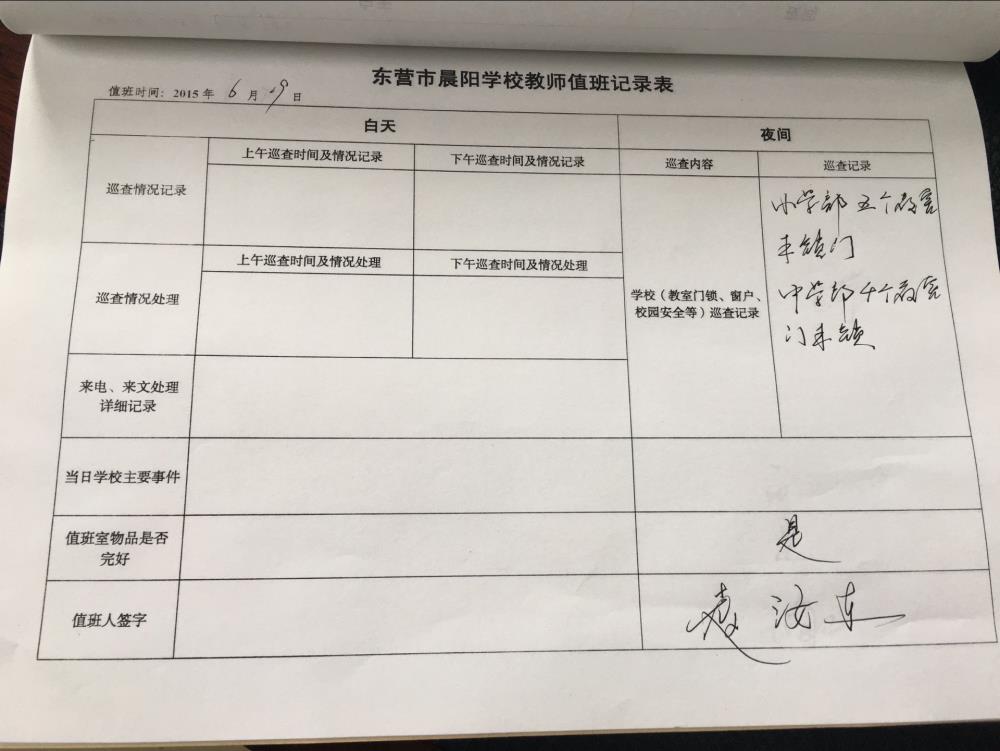 东营市晨阳学校教师值班记录表
值班时间：2015 年 6 月 29 日
白天
夜间
巡查情况记录
上午巡查时间及情况记录
下午巡查时间及情况记录
巡查内容
巡查记录
小学部五个教室
未锁门
中学部4个教室
门未锁
巡查情况处理
上午巡查时间及情况处理
下午巡查时间及情况处理
学校（教室门锁、窗户、
校园安全等）巡查记录
来电、来文处理
详细记录
当日学校主要事件
值班室物品是否
完好
是
值班人签字
汝东